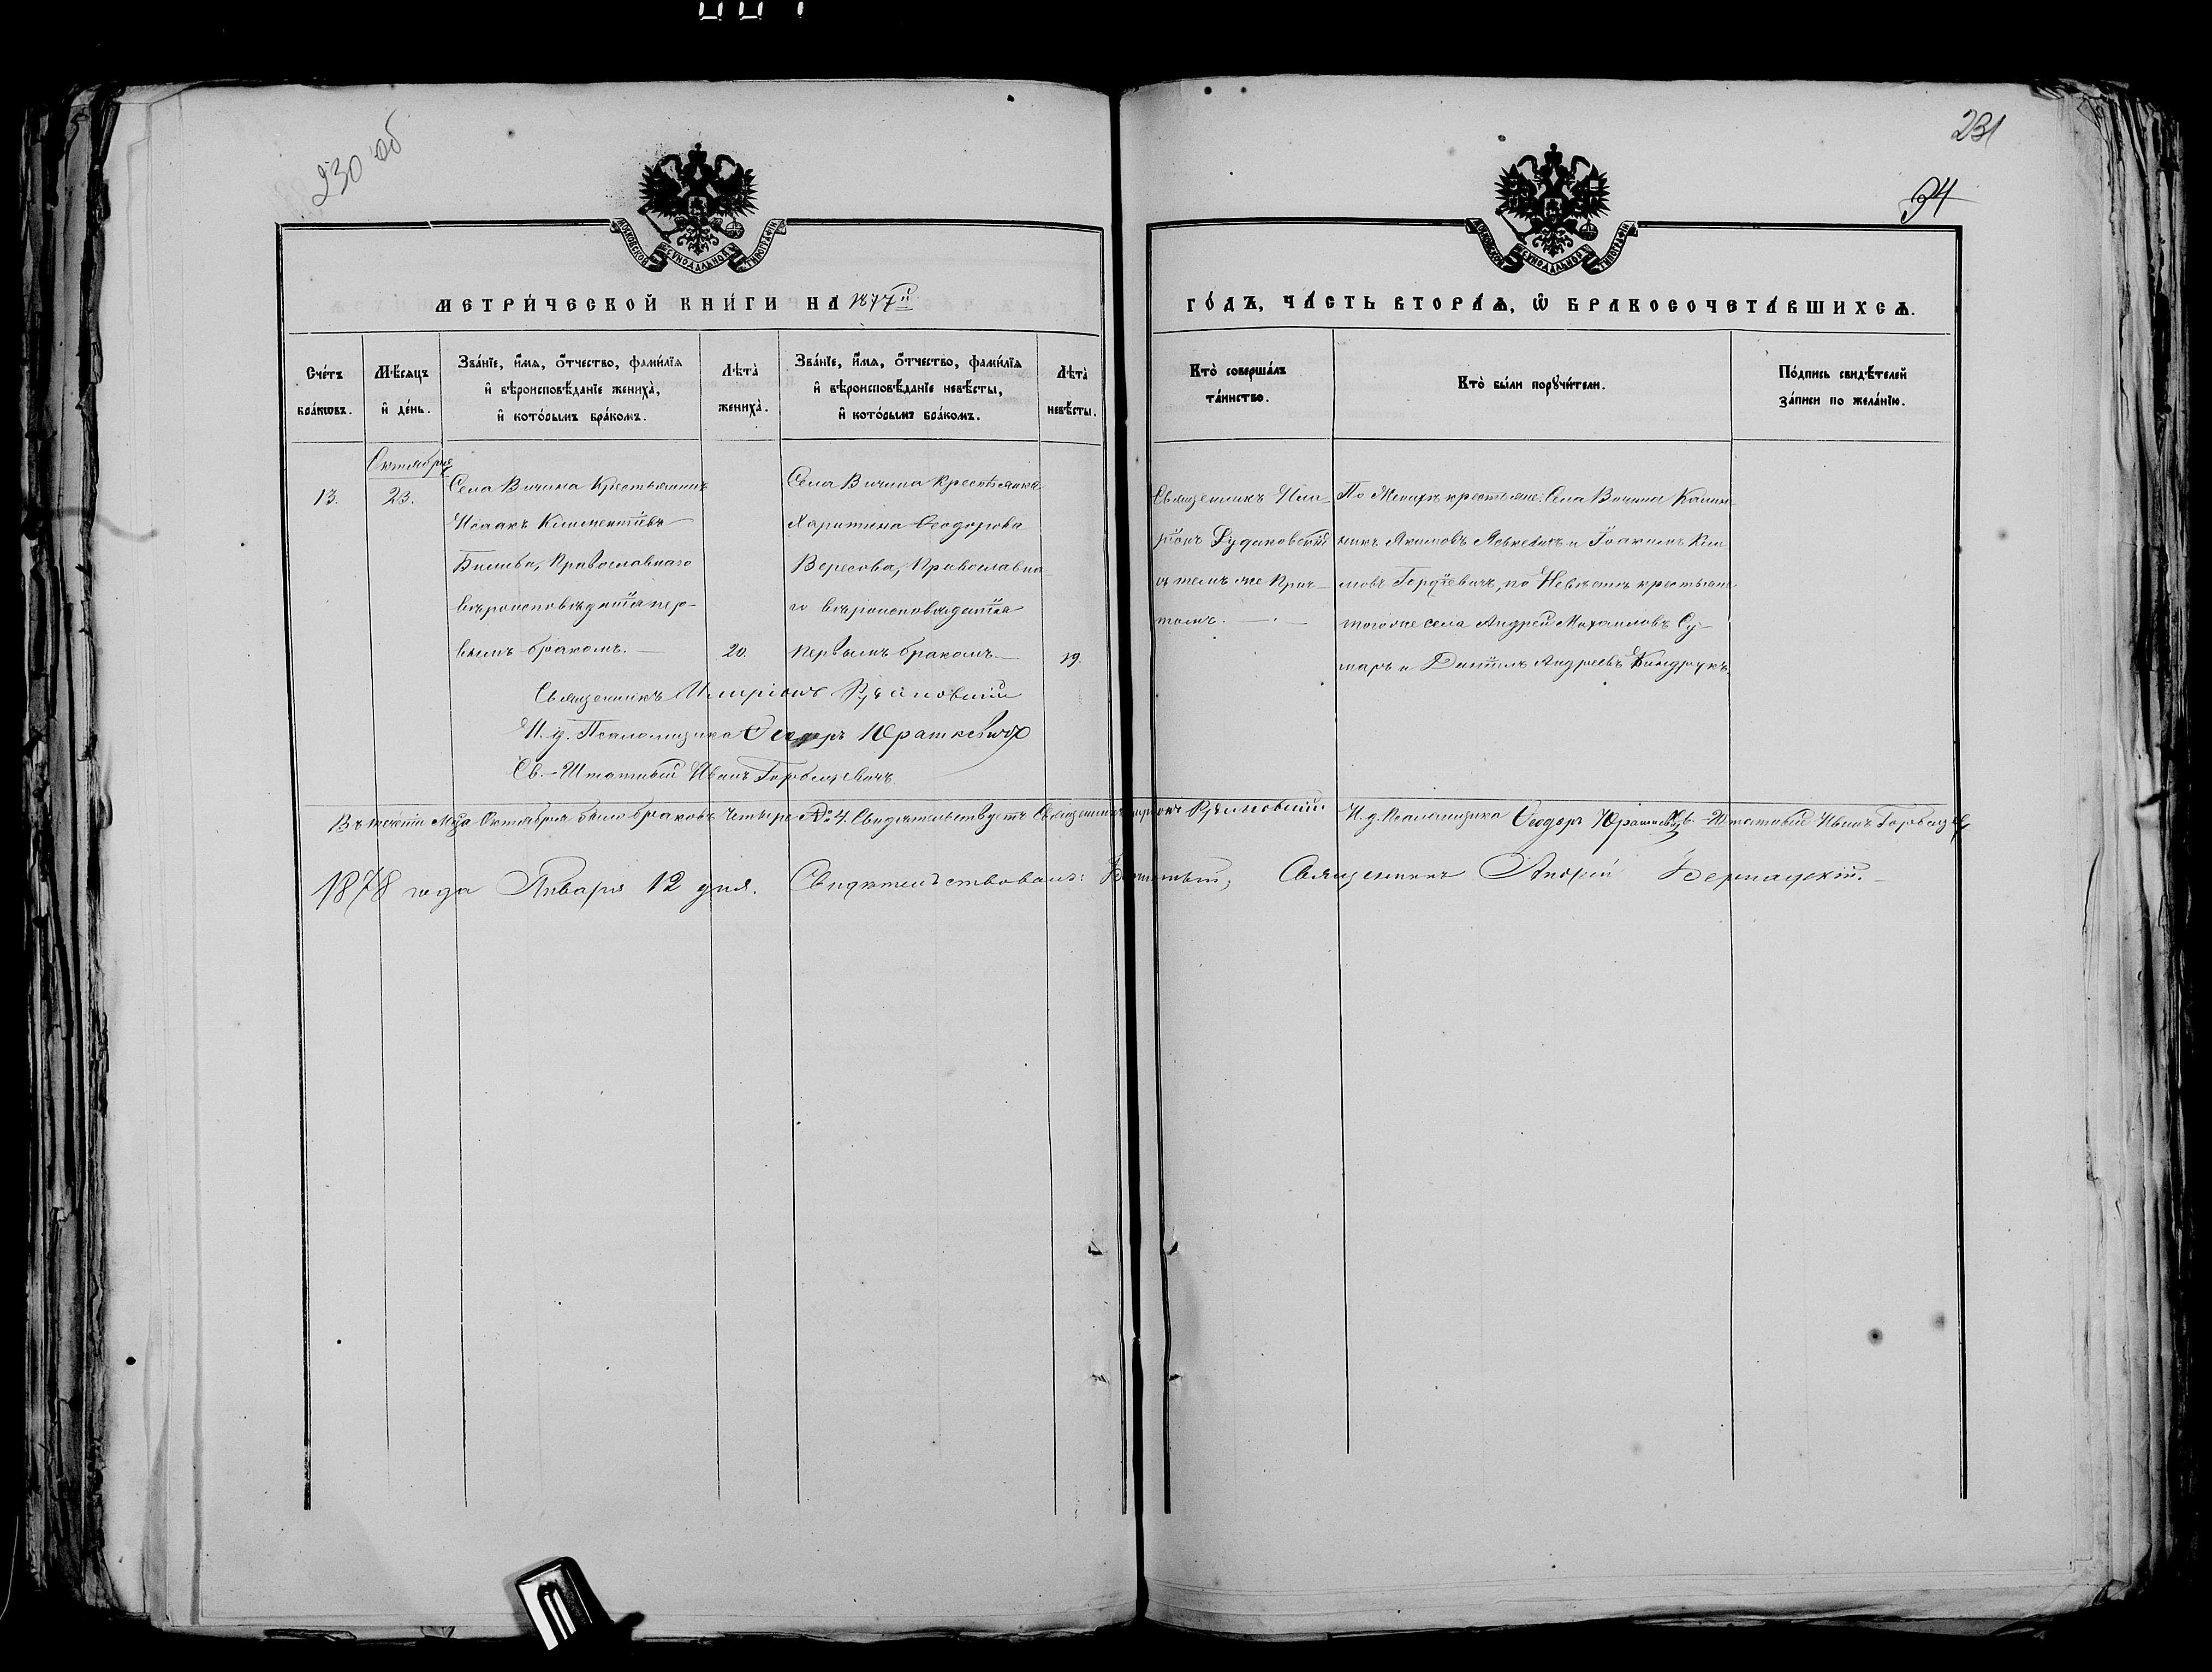 230 об
231
34
МОСКОВСКОЙ СѴНОДАЛЬНОЙ ТИПОГРАФІИ
МОСКОВСКОЙ СѴНОДАЛЬНОЙ ТИПОГРАФІИ
МЕТРИ́ЧЕСКОЙ КНИ́ГИ НА 1877й
ГО́ДЪ, ЧА́СТЬ ВТОРА́Ѧ, Ѡ БРАКОСОЧЕТА́ВШИХСѦ.
Сче́тъ
бра́кѡвъ.
Мѣ́сяцъ
и де́нь.
Зва́нїе, и́мя, о́тчество, фами́лїя
и вѣроисповѣ́данїе жениха̀,
и кото́рымъ бра́комъ.
Лѣта̀
жениха̀.
Зва́нїе, и́мя, о́тчество, фами́лїя
и вѣроисповѣ́данїе невѣ́сты,
и кото́рымъ бра́комъ.
Лѣта̀
невѣ́сты.
Кто̀ соверша́лъ
та́инство.
Кто̀ бы́ли порꙋчи́тели.
По́дпись свидѣ́телей
за́писи по жела́нїю.
Октября
13.
23.
Села Вичина Крестьянинъ
Исаакъ Климентіевъ
Православнаго
вѣроисповѣданія пер-
вымъ бракомъ.
20
Села Вичина крестьянка
Харитина Ѳеодорова
Вересова, Православна-
го вѣроисповѣданія
первымъ бракомъ.
19.
Священникъ Ила-
ріонъ
съ тѣмъ же Прич-
томъ.
По Женихѣ крестьяне: Села Вичина
Якимовъ и Іоакимъ Кли-
мовъ Гордіевичъ, по Невѣстѣ крестьяне
тогоже села Андрей Михаиловъ Су-
шаръ и Даніилъ Андреевъ Киндрукъ.
Священникъ Иларіонъ
И. д. Псаломщика Ѳеодоръ Юраткевичъ
Св.-Штатный Иванъ Горбацевичъ
Въ теченіи Мца Октября было браковъ Четыре № 4. Свидѣтельствуетъ Священникъ Иларіонъ И. д. Псаломщика Ѳеодоръ Юраткевичъ Св. Штатный Иванъ Горбацевичъ
1878 года Января 12 дня. Свидѣтельствовалъ: Благочинный, Священникъ Андрей Бернадскій.